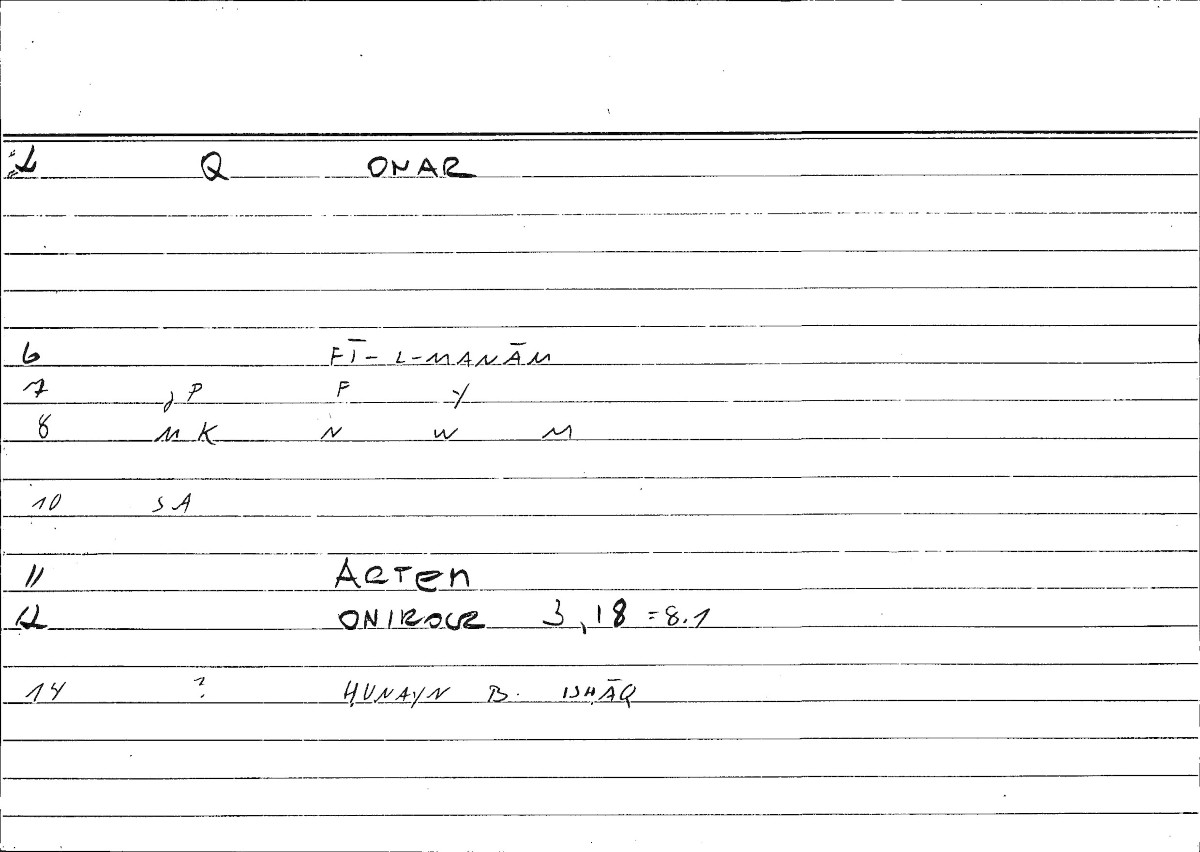 1 Q ONAR
6 FĪ-L-MANĀM
7 jP F Y
8 MK N W M
10 SA
11 ARTEM
12 ONIROCR 3,18 =8.1
14 ? ḤUNAYN B. ISḤĀQ